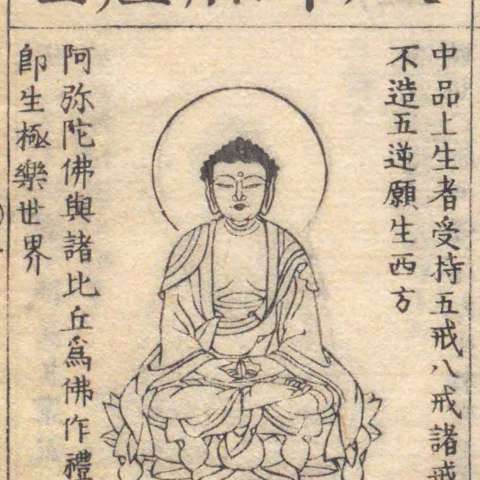 中品上生者受持五戒八戒諸戒
不造五逆願生西方
阿弥陀佛與諸比丘爲佛作禮
卽生極樂世界